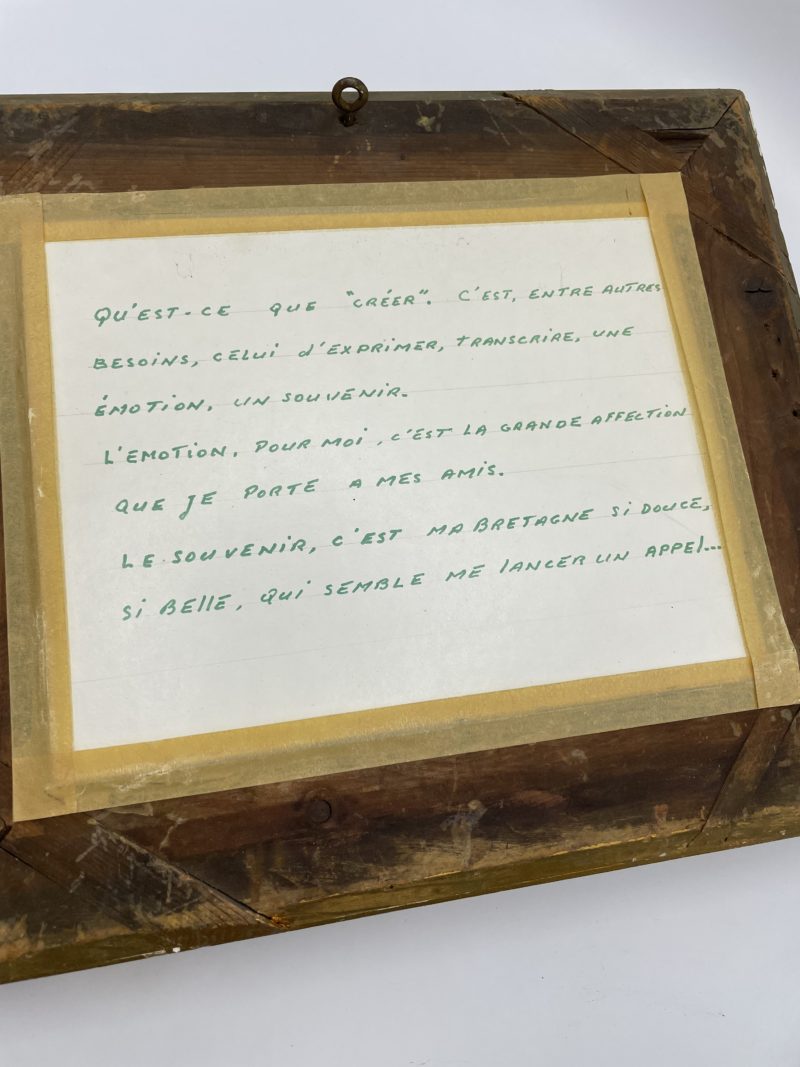 QU'EST-CE QUE "CRÉER". C'EST, ENTRE AUTRES
BESOINS, CELUI d'EXPRIMER, TRANSCRIRE, UNE
ÉMOTION, UN SOUVENIR.
L'EMOTION, POUR MOI, C'EST LA GRANDE AFFECTION
QUE JE PORTE A MES AMIS.
LE SOUVENIR, C'EST MA BRETAGNE SI DOUCE,
SI BELLE, QUI SEMBLE ME LANCER UN APPEL...